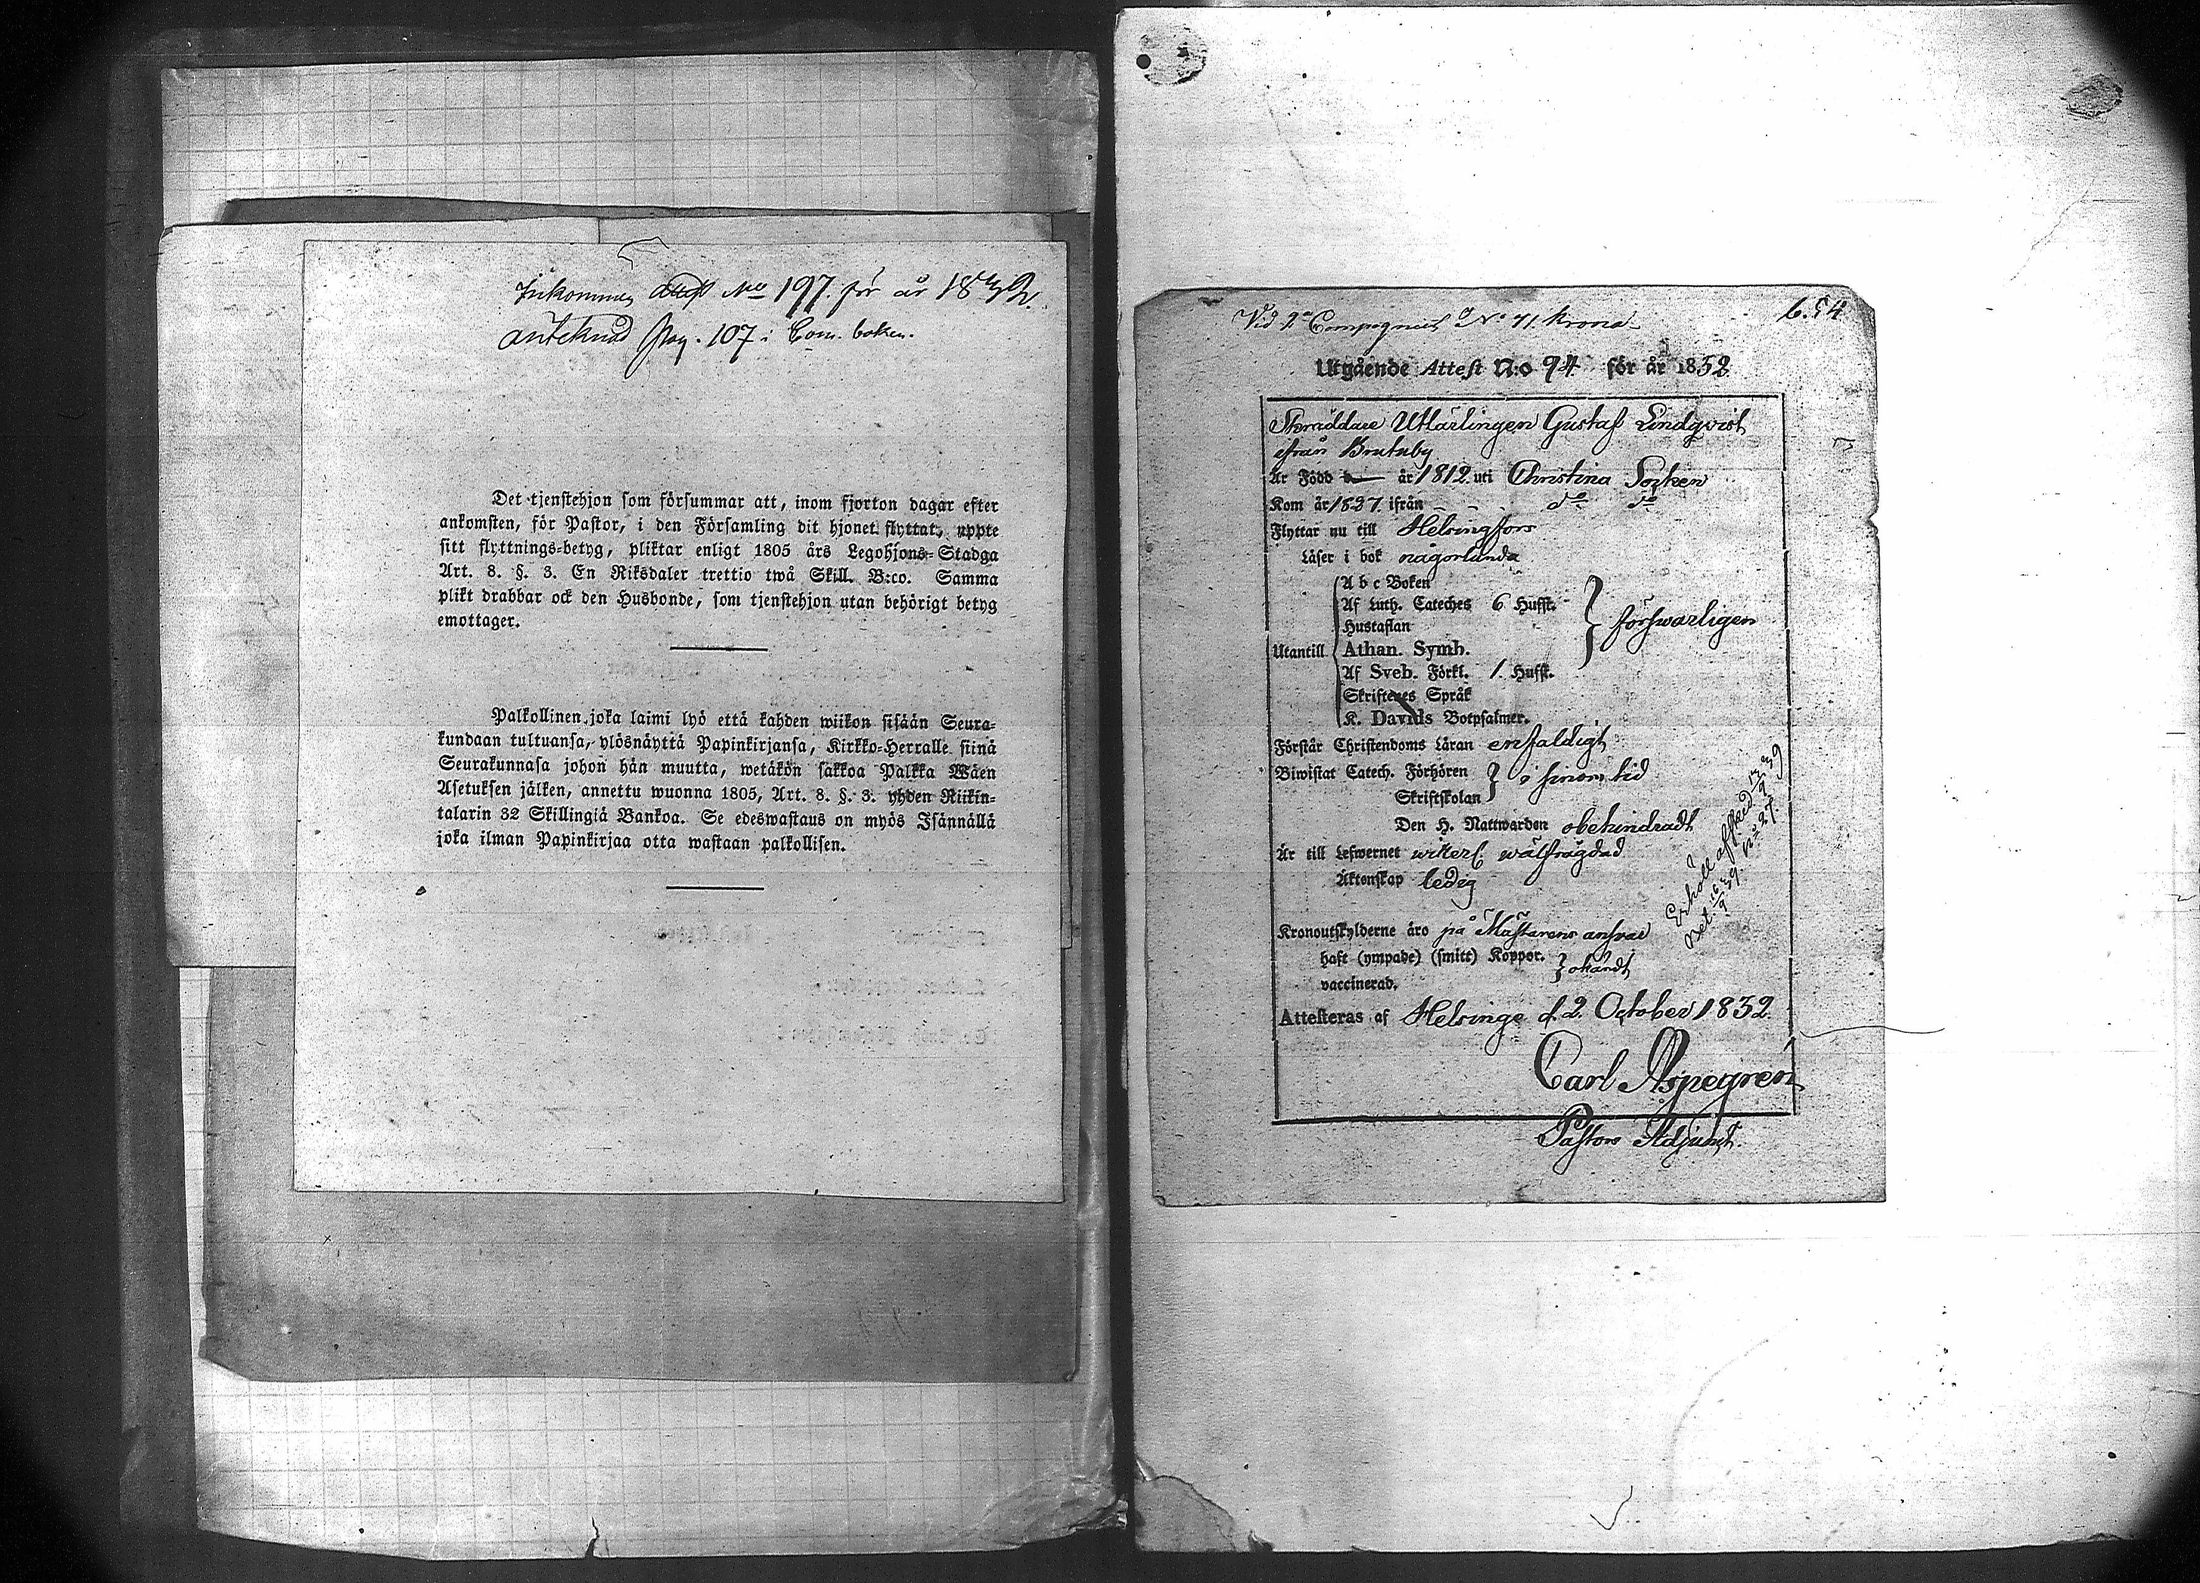 Inkommen attest No 197. för år 1832.
anteknad Pag. 107 i Com. boken.
Det tjenstehjon som försummar att, inom fjorton dagar efter
ankomsten, för Pastor, i den Församling dit hjonet flyttat, uppte
sitt flyttnings-betyg, pliktar enligt 1805 års Legohjons-Stadga
Art. 8. §. 3. En Riksdaler trettio twå Skill. B:co. Samma
plikt drabbar ock den Husbonde, som tjenstehjon utan behörigt betyg
emottager.
Palkollinen joka laimi lyö että kahden wiikon sisään Seura-
kundaan tultuansa, ylösnäyttä Papinkirjansa, Kirkko-Herralle siinä
Seurakunnasa johon hän muutta, wetäkön sakkoa Palkka Wäen
Asetuksen jälken, annettu wuonna 1805, Art. 8. §. 3. yhden Riikin-
talarin 32 Skillingiä Bankoa. Se edeswastaus on myös Isännällä
joka ilman Papinkirjaa otta wastaan palkollisen.
6.54
Vid 2a Compagniet No 71. Krono
Utgående Attest N:o 94 för år 1832
Skräddare Utlärlingen Gustaf Lindqvist
ifrån Brutuby
Är Född d år 1812. uti Christina Socken
Kom år 1827. ifrån do do
Flyttar nu till Helsingfors
Läser i bok någorlunda
A b c Boken
Af Luth. Cateches 6 Hufst.
Hustaflan
Utantill Athan. Symb. förswarligen
Af Sveb. Förkl. 1. Hufst.
Skriftenes Språk
K. Davids Botpsalmer.
Förstår Christendoms Läran enfaldigt
Biwistat Catech. Förhören i sinom tid
Skriftskolan
Den H. Nattwarden obehindradt
Är till Lefwernet wäl frägdad
Äktenskap ledig
Erhöll afsked 13/9 39
Bet. 16/9 39. No 27.
Kronoutskylderne äro på Mästarens answar
haft (ympade) (smitt) Koppor. okändt
vaccinerad.
Attesteras af Helsinge d. 2. October 1832.
Carl Aspegren
Pastors Adjunct.